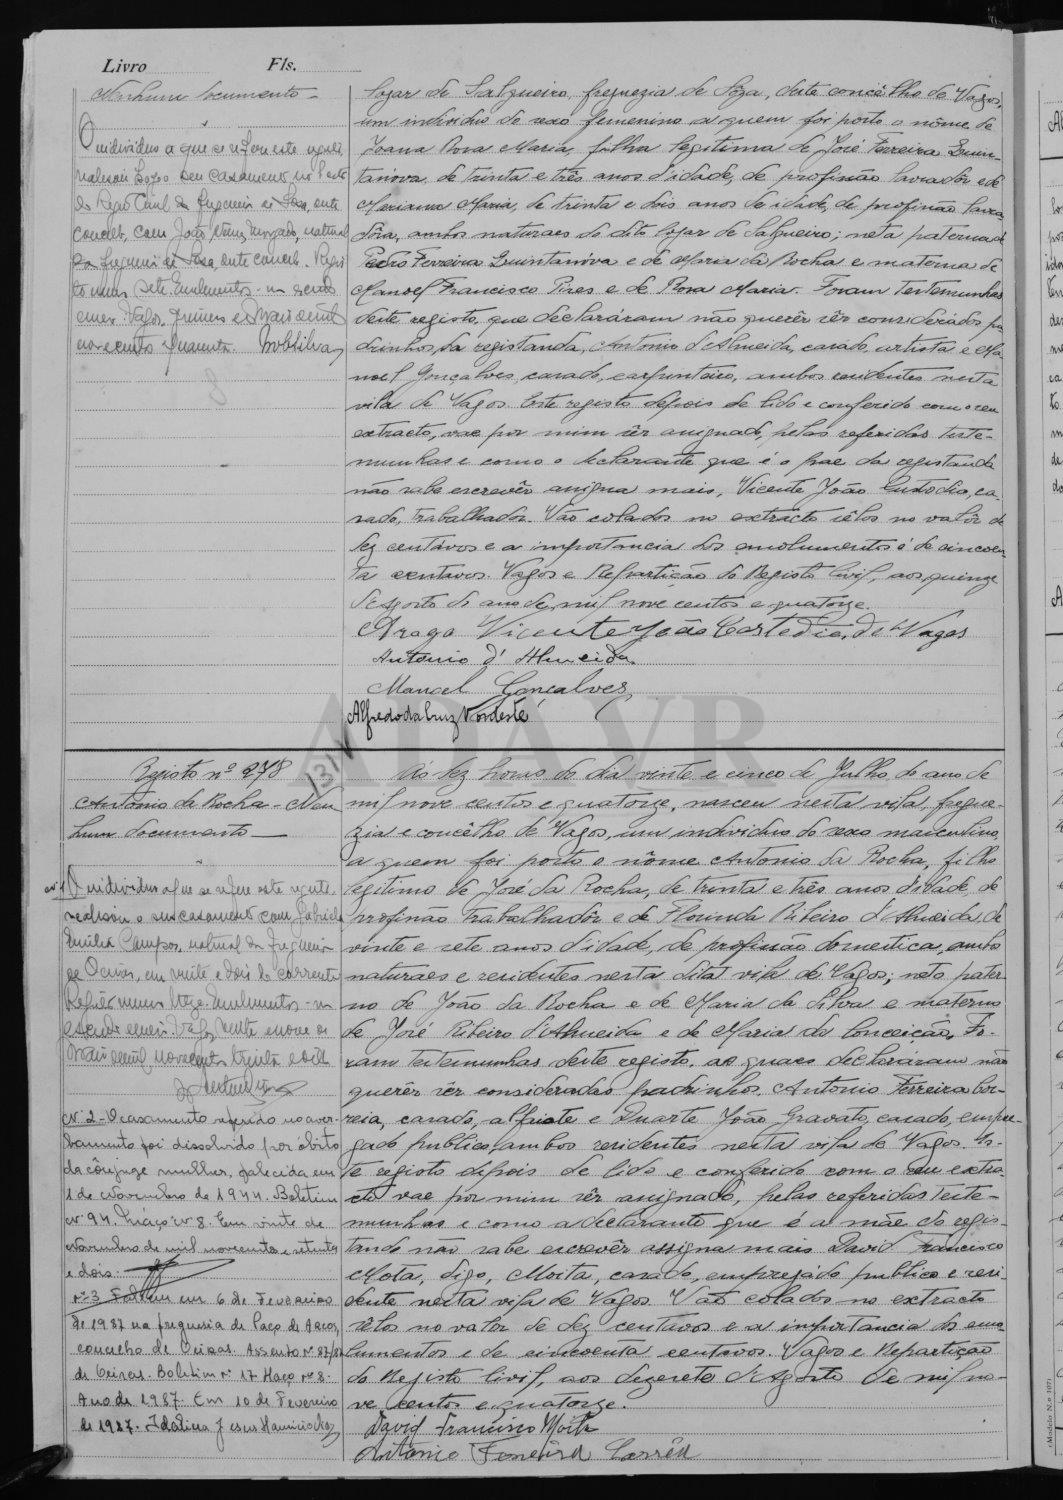 Livro Fls.
Nenhum documento -
O individuo a que se refere este registo
realisou hoje o seu casamento no Posto
do Registo Civil da freguesia de Sosa, este
concelho, com João Nunes Morgado, natural
da freguesia de Sosa, este concelho. Regis
to numero sete. Emolumentos - um escudo
Vagos, primeiro de Maio de mil
novecentos e quarenta.
logar de Salgueiro, freguezia de Sôza, deste concêlho de Vagos,
um individuo de sexo femenino a quem foi posto o nôme de
Joana Rosa Maria, filha legitima de José Ferreira Quin-
tanova, de trinta e três anos d'idade, de profissão lavrador e de
Mariana Maria, de trinta e dois anos de idade, de profissão lavra
dôra, ambos naturaes do dito logar de Salgueiro; neta paterna de
Pedro Ferreira Quintanóva e de Maria da Rocha e materna de
Manoel Francisco Pires e de Rosa Maria. Foram testemunhas
deste registo, que declaráram não querêr sêr considerados pa
drinhos da registanda, Antonio d'Almeida, casado, artista e Ma
noel Gonçalves, casado, carpinteiro, ambos residentes nesta
vila de Vagos. Este registo depois de lido e conferido com o seu
extracto, vae por mim sêr assignado, pelas referidas teste-
munhas e como o declarante que é o pae da registanda
não sabe escrevêr assigna mais, Vicente João Custodio, ca-
sado, trabalhador. Vão colados no extracto sêlos no valôr de
dez centávos e a importancia dos emolumentos é de cincoen-
ta centavos. Vagos e Repartição do Registo Civil, aos quinze
d'Agosto do ano de mil nove centos e quatorze.
Arago Vicente João Costodio, de Vagos
Antonio d'Almeida
Manoel Gonçalves
Alfredo da Cruz Nordeste
ADAVR
131V
Registo nº 278
Antonio da Rocha - Nen
hum documento —
Nº 1 O individuo a que se refere este registo
realisou o seu casamento com Gabriela
Emilia Campos, natural da freguesia
de Oeiras, em vinte e dois do corrente
Registo numero treze. Emolumentos - um
escudo Vagos, vinte e nove de
Maio de mil novecentos trinta e oito
Nº 2 - O casamento referido no aver-
bamento foi dissolvido por óbito
da cônjuge mulher, falecida em
1 de Novembro de 1944. Boletim
Nº 94. Maço nº 8. Em vinte de
Novembro de mil novecentos e setenta
e dois.
nº 3 Faleceu em 6 de Fevereiro
de 1987 na freguesia de Paço de Arcos,
concelho de Oeiras. Assento nº 87/87
de Oeiras. Boletim nº 17 Maço nº 8.
Ano de 1987. Em 10 de Fevereiro
de 1987. Idalina Jesus
Ás dez horas do dia vinte e cinco de Julho do ano de
mil nove centos e quatorze, nasceu nesta vila, fregue-
zia e concêlho de Vagos, um individuo do sexo masculino,
a quem foi posto o nôme Antonio da Rocha, filho
legitimo de José da Rocha, de trinta e três anos d'idade, de
profissão trabalhadôr e de Florinda Ribeiro d'Almeida, de
vinte e sete anos d'idade, de profissão domestica, ambos
naturaes e residentes nesta dita vila de Vagos; neto pater-
no de João da Rocha e de Maria da Silva e materno
de José Ribeiro d'Almeida e de Maria da Conceição. Fo-
ram testemunhas deste registo, as quaes declaráram não
querêr sêr considerados padrinhos, Antonio Ferreira Cor-
reia, casado, alfaiate e Duarte João Gravato, casado, empre-
gado publico, ambos residentes nesta vila de Vagos. Es-
te registo depois de lido e conferido com o seu extra-
cto vae por mim sêr assignado, pelas referidas teste-
munhas e como a declarante que é a mãe do regis-
tando não sabe escrevêr assigna mais David Francisco
Mota, digo, Moita, casado, empregado publico e resi-
dente nesta vila de Vagos. Vaõ colados no extracto
sêlos no valor de dez centavos e a importancia dos emo-
lumentos é de cincoenta centavos. Vagos e Repartição
do Registo Civil, aos dezesete d'Agosto de mil no-
ve centos e quatorze.
David Francisco Moita
Antonio Ferreira Corrêa